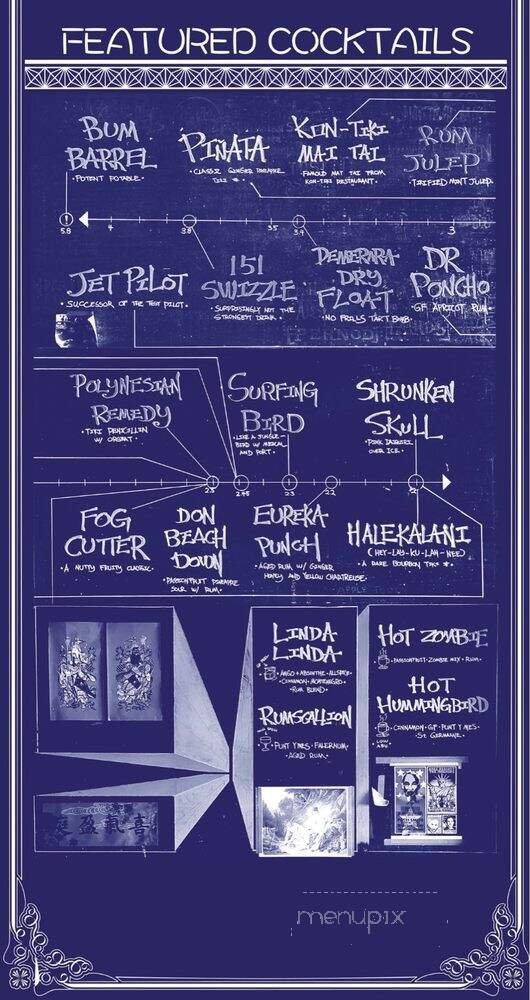 FEATURED COCKTAILS
BUM BARREL
• POTENT POTABLE •
PIÑATA
• CLASSIC GINGER PINEAPPLE
TIKI * •
KON-TIKI
MAI TAI
• FAMOUS MAI TAI FROM
KON-TIKI RESTAURANT •
RUM
JULEP
• TIKIFIED MINT JULEP
5.8
4
3.8
3.5
3.4
3
JET PILOT
• SUCCESSOR OF THE TEST PILOT •
151
SWIZZLE
• SURPRISINGLY NOT THE
STRONGEST DRINK •
DEMERARA
DRY
FLOAT
• NO FRILLS TART BOMB •
DR
PONCHO
• GF APRICOT RUM •
POLYNESIAN
REMEDY
• TIKI PENICILLIN
W/ ORGEAT •
SURFING
BIRD
• LIKE A JUNGLE-
BIRD W/ MEZCAL
AND PORT •
SHRUNKEN
SKULL
• PINK DAIQUIRI
OVER ICE •
2.5
2.45
2.3
2.2
FOG
CUTTER
• A NUTTY FRUITY CLASSIC •
DON
BEACH
DOWN
• PASSIONFRUIT PINEAPPLE
SOUR W/ RUM •
EUREKA
PUNCH
• AGED RUM W/ GINGER
HONEY AND YELLOW CHARTREUSE •
HALEKALANI
(HEY-LAY-KU-LAH-NEE)
• A RARE BOURBON TIKI * •
LINDA
LINDA
• ABSINTHE • ALLSPICE
• CINNAMON • MONTENEGRO •
• RUM BLEND •
HOT ZOMBIE
• PASSIONFRUIT • ZOMBIE MIX • RUM •
HOT
HUMMINGBIRD
• CINNAMON • GF • PUNT Y MES •
ST GERMAINE •
LOW
ABV
RUMSCALLION
• PUNT Y MES • FALERNUM •
AGED RUM •
盈 氣 喜
menupix